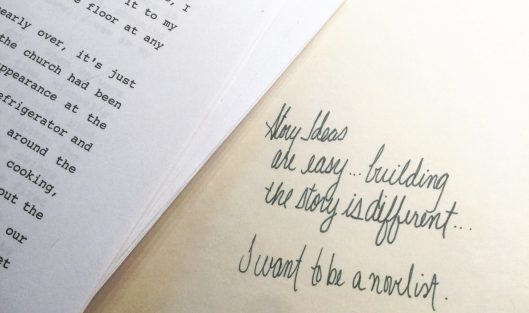 , I
it to my
e floor at any
early over, it's just
the church had been
ppearance at the
efrigerator and
around the
cooking,
out the
our
et
Story Ideas
are easy... building
the story is different...
I want to be a novelist.